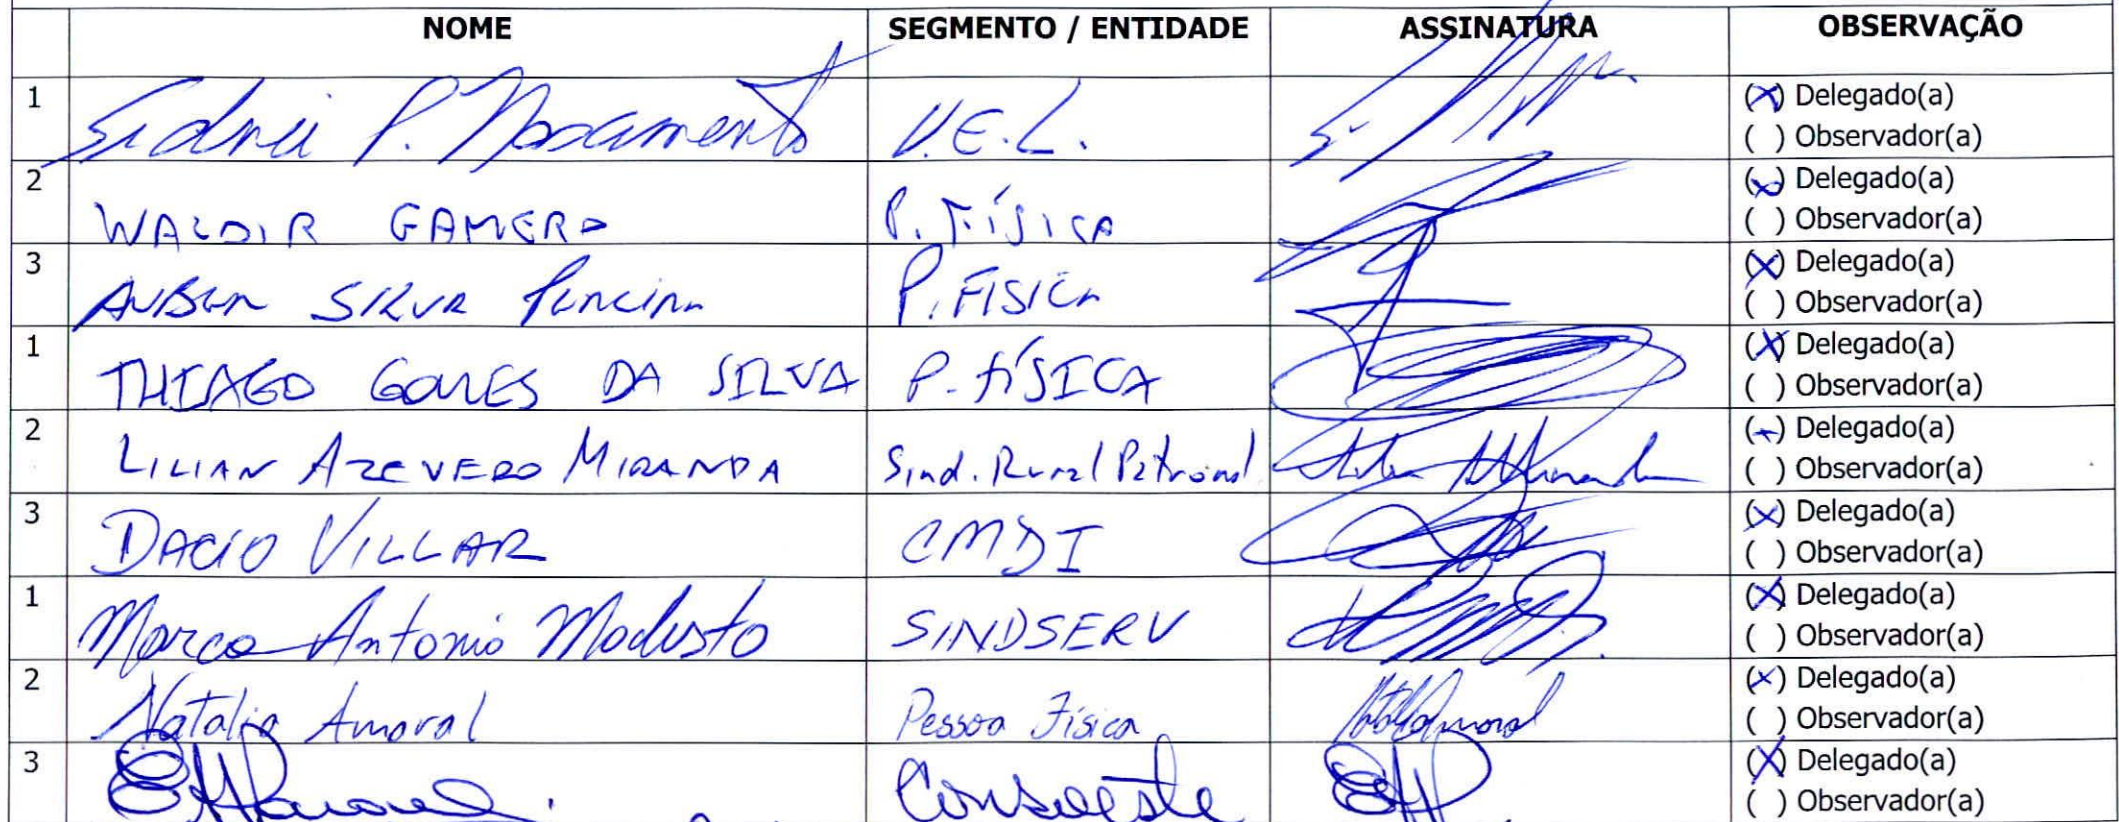 NOME SEGMENTO / ENTIDADE ASSINATURA OBSERVAÇÃO
1 Sidnei P. Nascimento V.E.L. (X) Delegado(a)
( ) Observador(a)
2 WALDIR GAMERO P. FÍSICA (X) Delegado(a)
( ) Observador(a)
3 SILVA P. FISICA (X) Delegado(a)
( ) Observador(a)
1 THIAGO GOMES DA SILVA P. FÍSICA (X) Delegado(a)
( ) Observador(a)
2 LILIAN AZEVEDO MIRANDA Sind. Rural Patronal (X) Delegado(a)
( ) Observador(a)
3 DACIO VILLAR CMDI (X) Delegado(a)
( ) Observador(a)
1 Marco Antonio Modesto SINDSERV (X) Delegado(a)
( ) Observador(a)
2 Natalia Amaral Pessoa Física (X) Delegado(a)
( ) Observador(a)
3 Consoeste (X) Delegado(a)
( ) Observador(a)